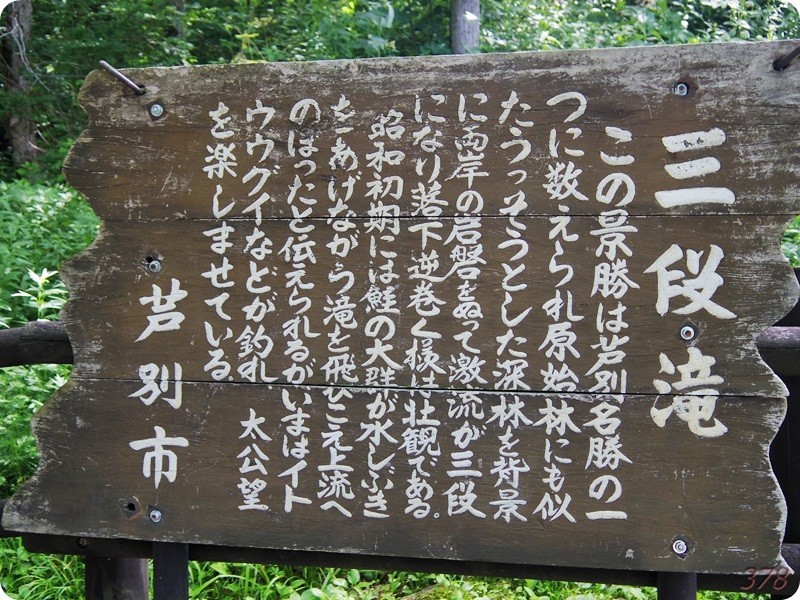 三段滝
この景勝は芦別名勝の一
つに数えられ原始林にも似
たうっそうとした深林を背景
に両岸の岩磐をぬって激流が三段
になり落下逆巻く様は壮観である。
昭和初期には鮭の大群が水しぶき
をあげながら滝を飛びこえ上流へ
のぼったと伝えられるがいまはイト
ウウグイなどが釣れ、太公望
を楽しませている。
芦別市
378